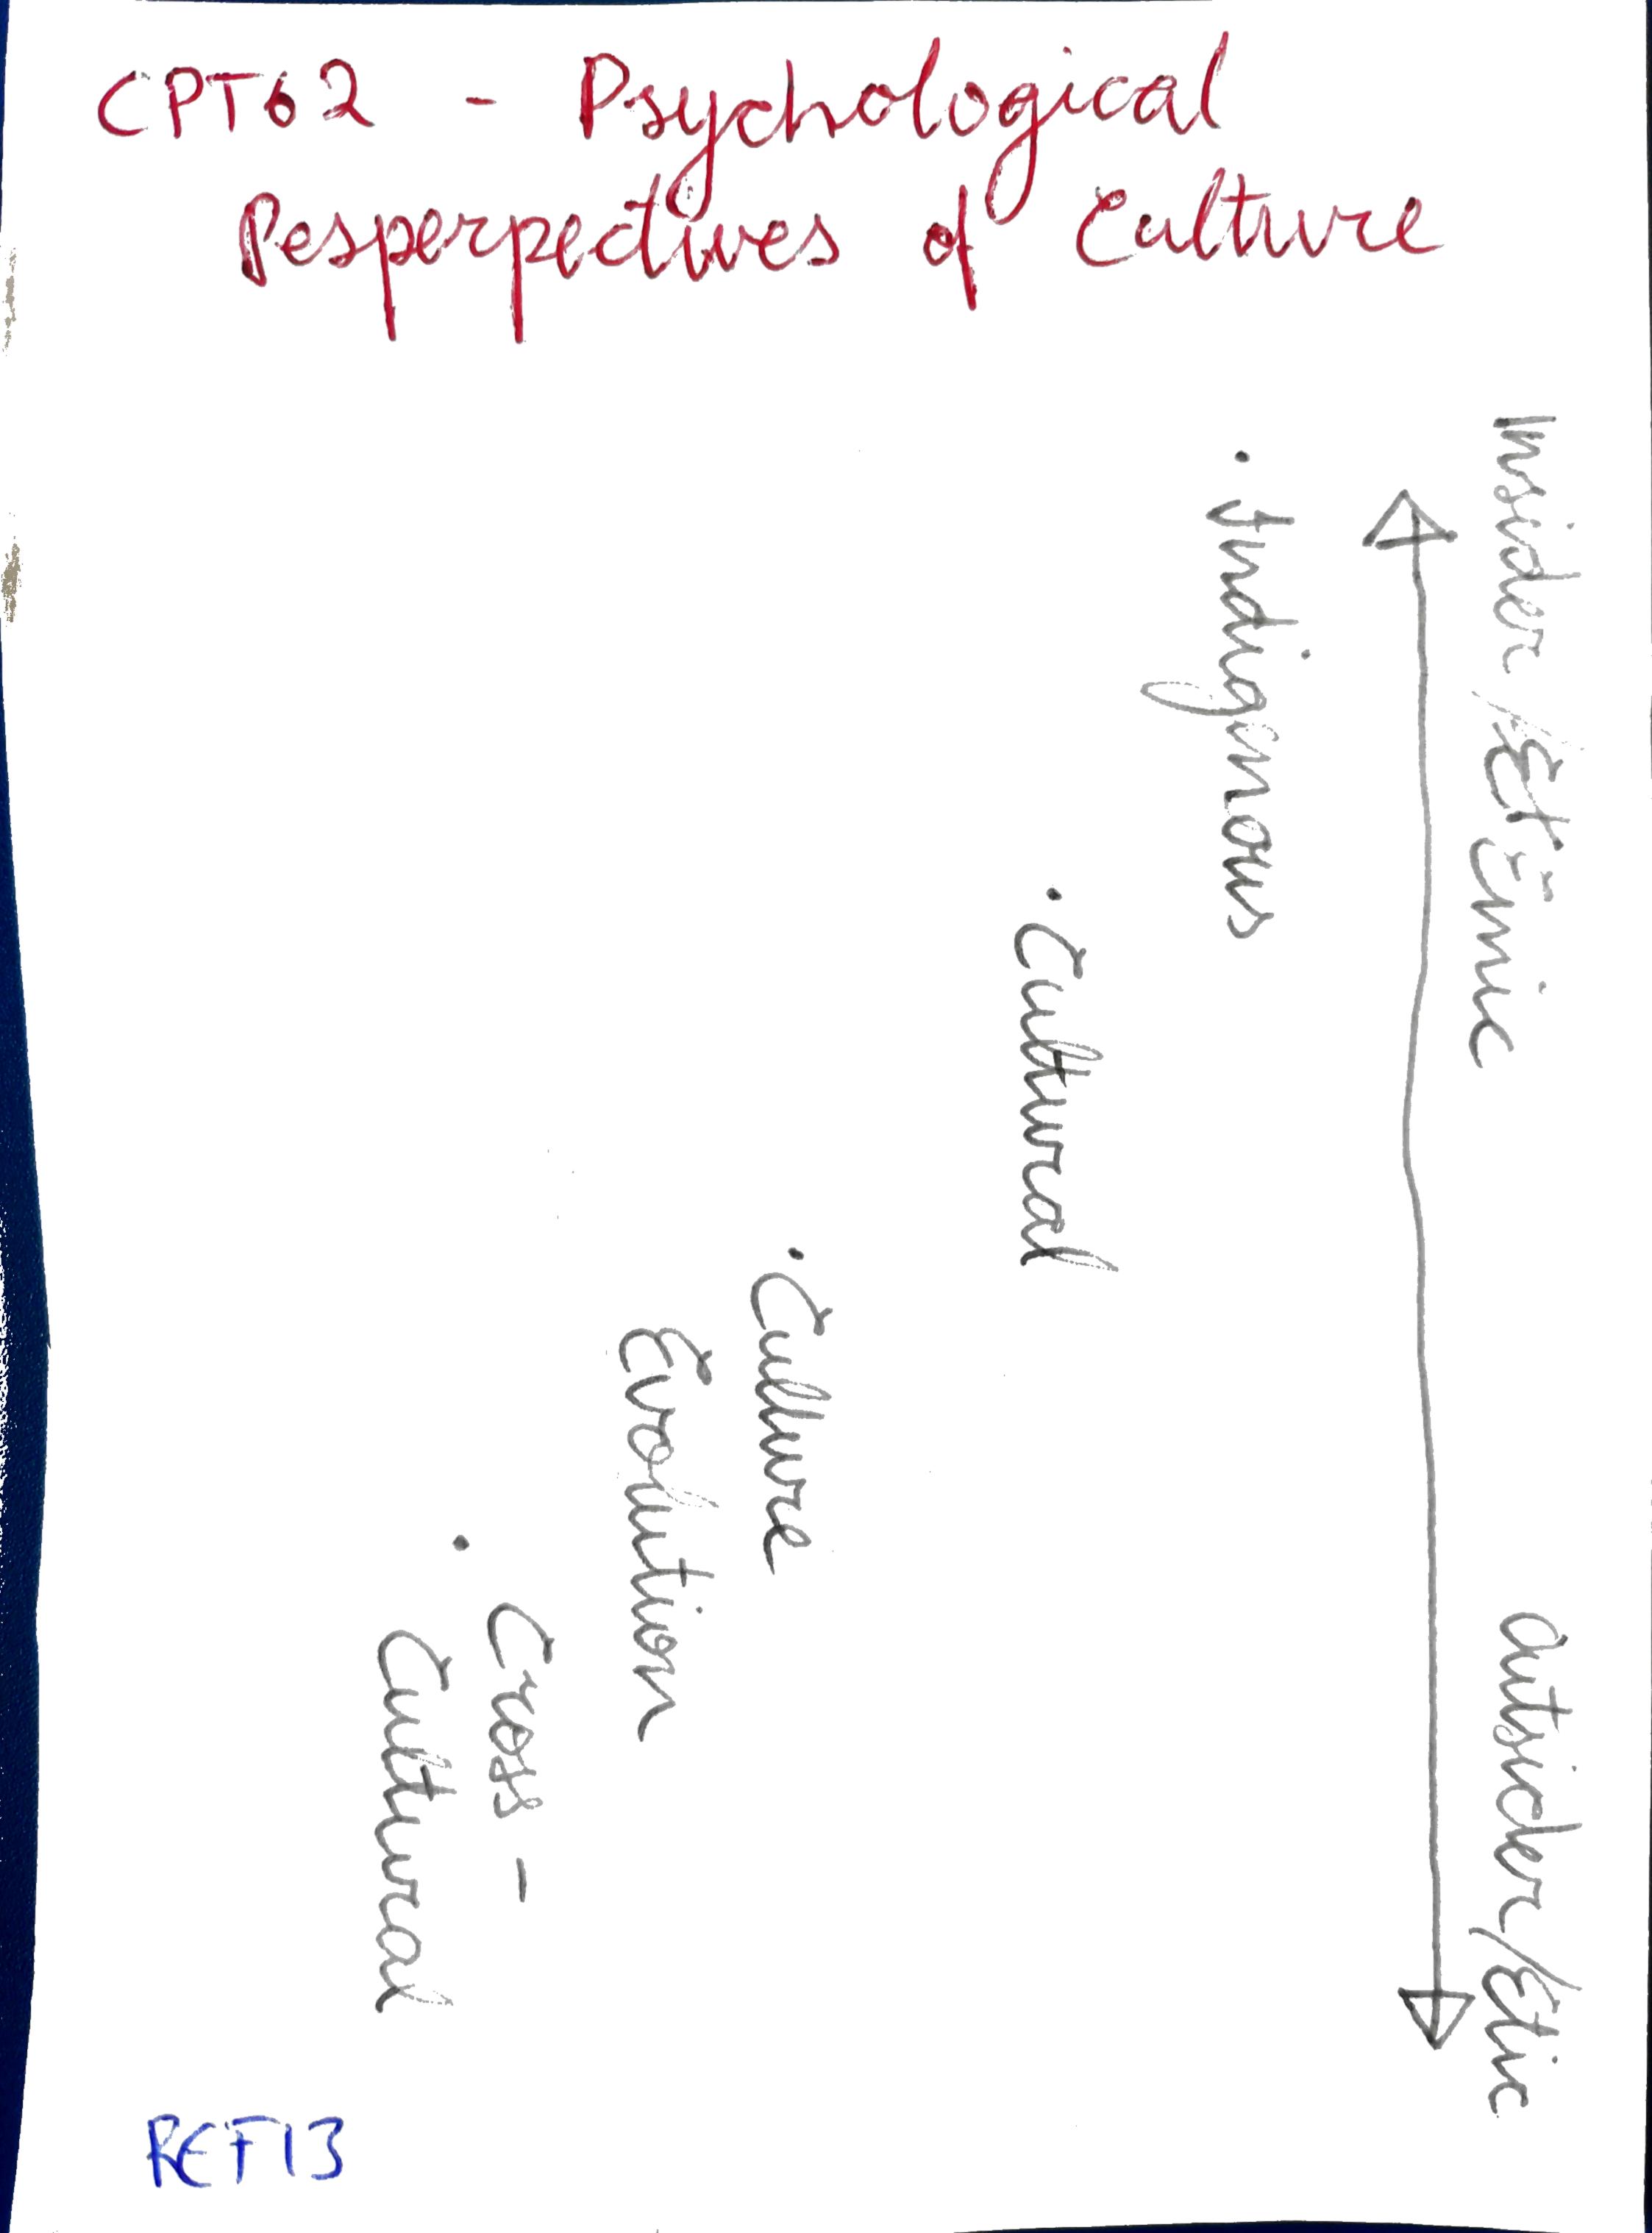 CPT62 - Psychological
Pesperpectives of Culture
Insider/Et Emic
Outsider/Etic
. Indigenous
. Cultural
. Culture
Evolution
. Cross -
Cultural
REF13